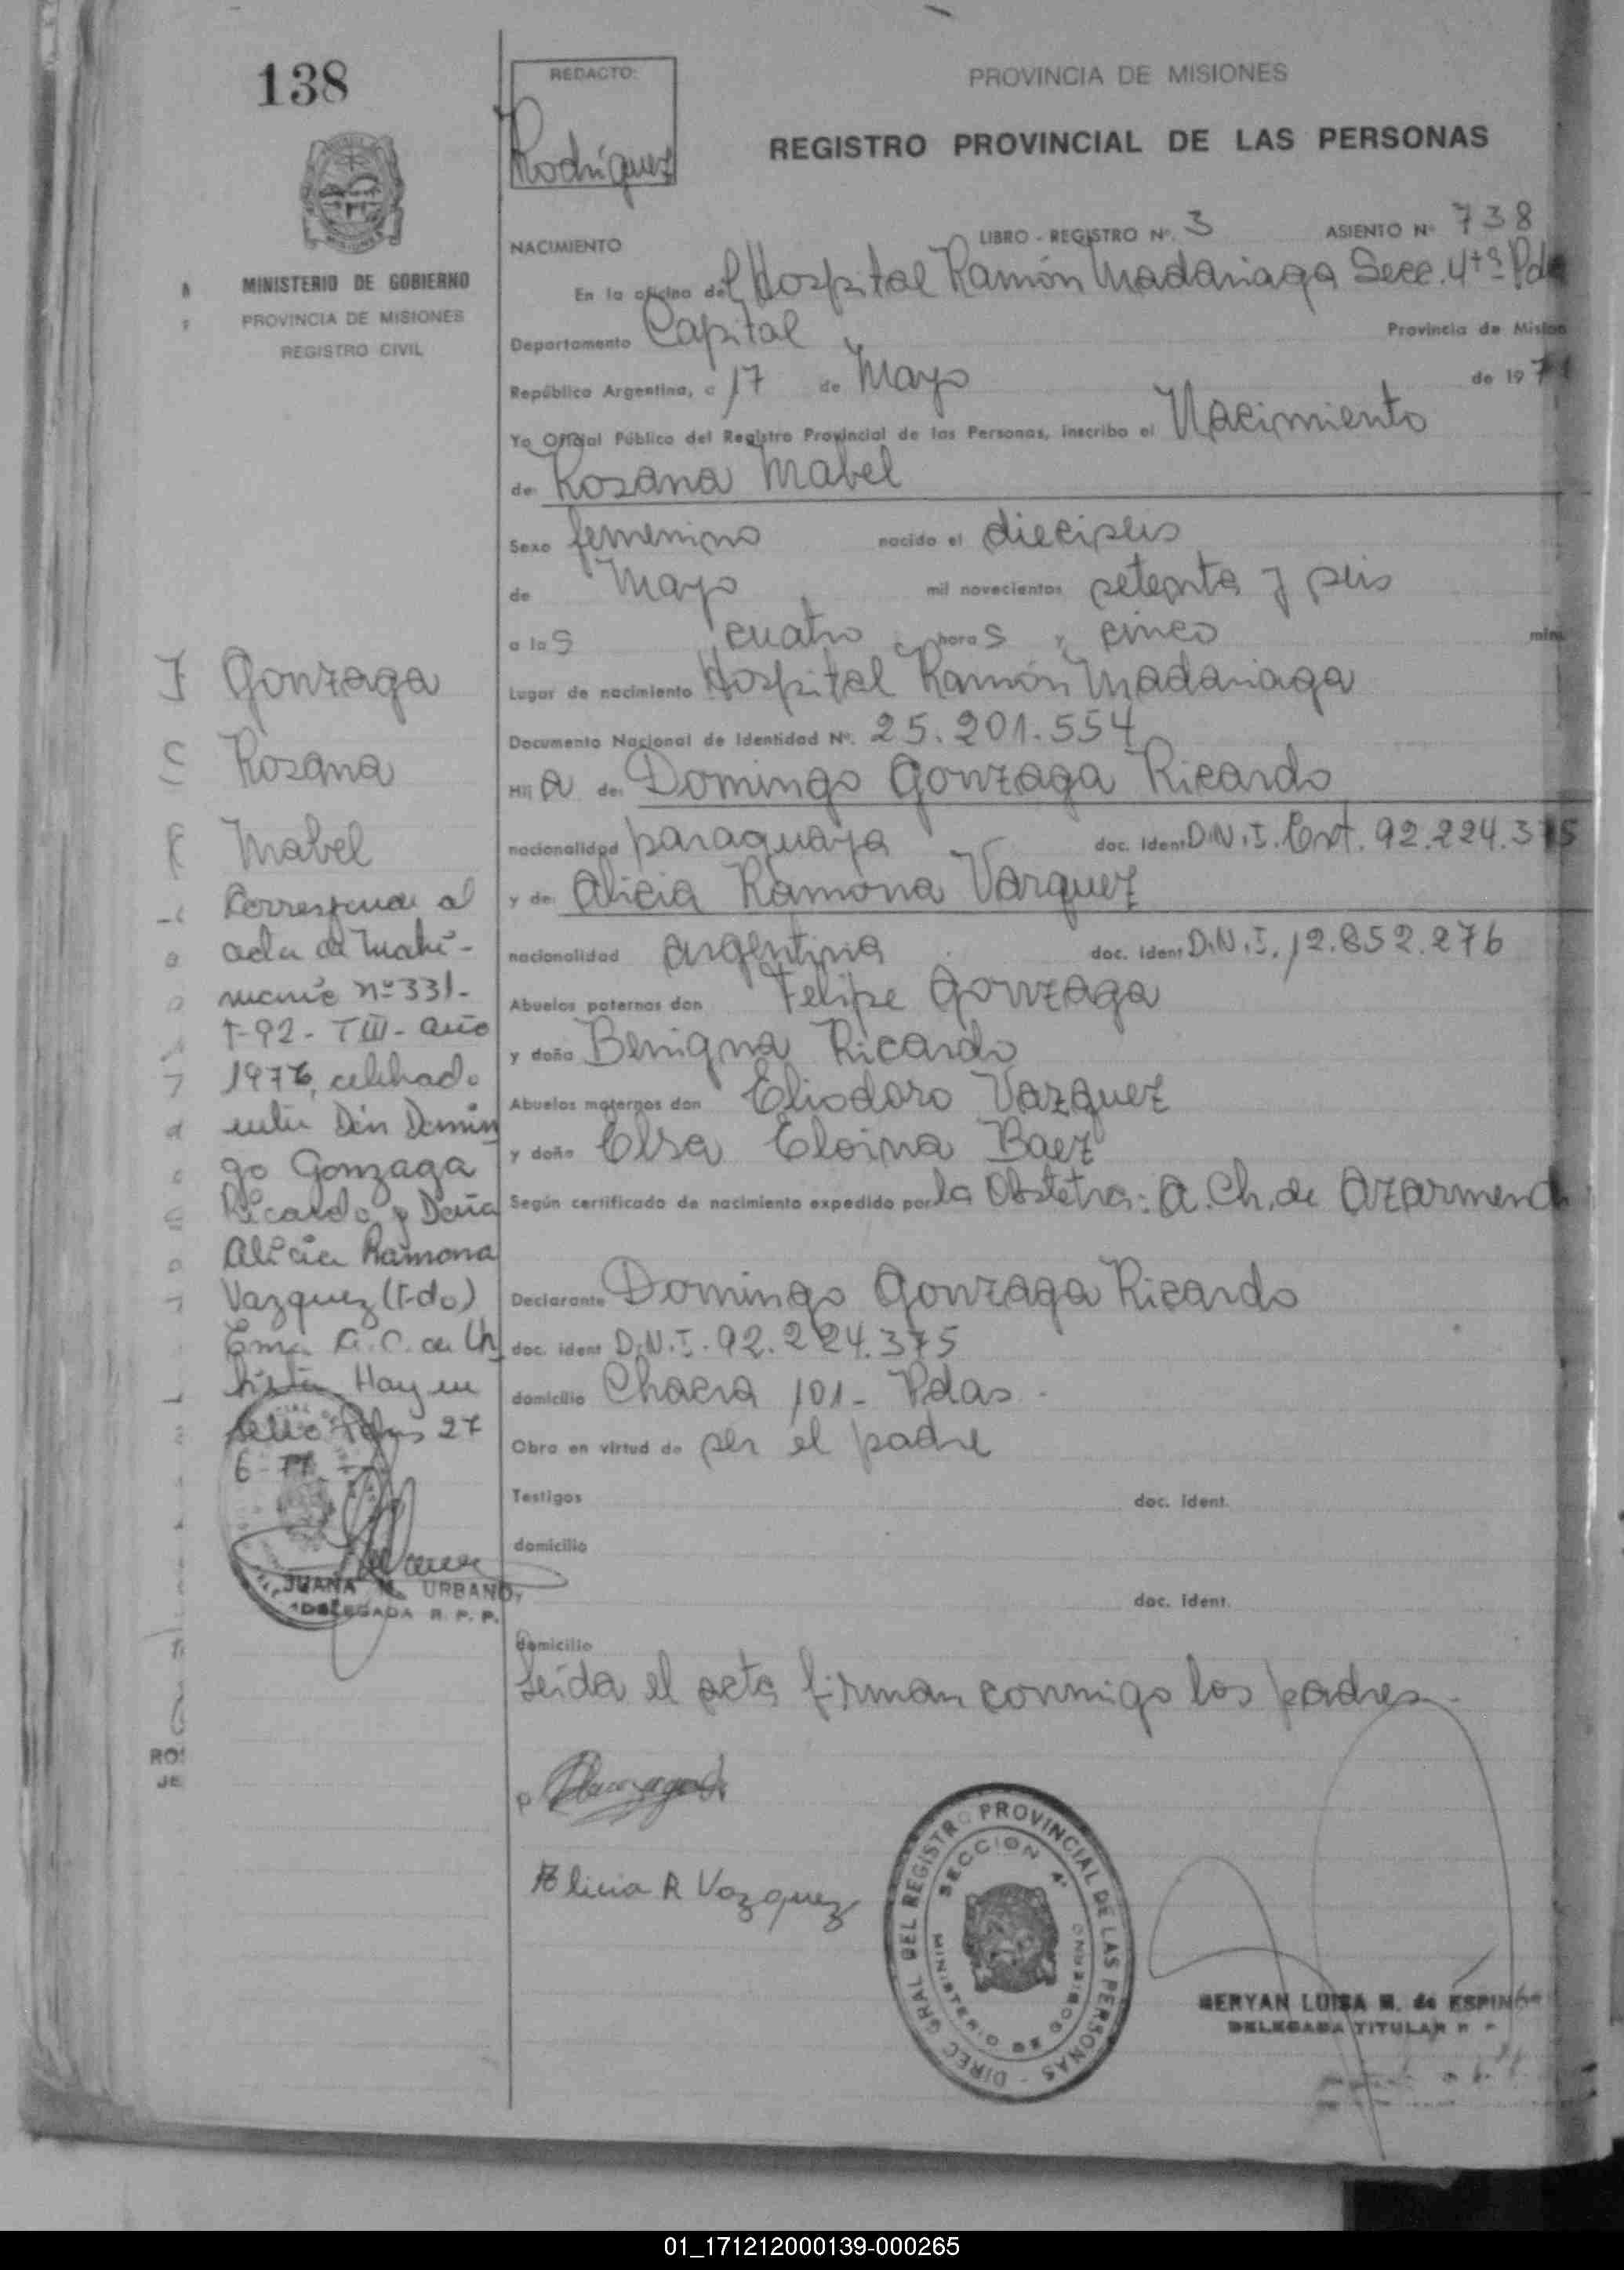 138
MINISTERIO DE GOBIERNO
PROVINCIA DE MISIONES
REGISTRO CIVIL
Gonzaga
Rosana
Mabel
Corresponde al
acta de Matri-
monio nº 331-
T-92- TIII- año
1976, celebrado
entre Don Domin
go Gonzaga
Ricardo y Doña
Alicia Ramona
Vazquez (Fdo)
Ema
Hay un
sello Pdas 27
6-77
JUANA M. URBANO
DELEGADA R. P. P.
REDACTO:
Rodríguez
PROVINCIA DE MISIONES
REGISTRO PROVINCIAL DE LAS PERSONAS
NACIMIENTO LIBRO - REGISTRO Nº. 3 ASIENTO Nº 738
En la oficina del Hospital Ramón Madariaga Secc. 4ta Pda
Departamento Capital Provincia de Mision
República Argentina, a 17 de Mayo de 19
Yo Oficial Público del Registro Provincial de las Personas, inscribo el Nacimiento
de Rosana Mabel
Sexo femenino nacido el dieciseis
de Mayo mil novecientos setenta y seis
a las cuatro horas y cinco min.
Lugar de nacimiento Hospital Ramón Madariaga
Documento Nacional de Identidad Nº. 25.201.554
Hija de: Domingo Gonzaga Ricardo
nacionalidad paraguaya doc. Ident D.N.I. Ext. 92.224.375
y de: Alicia Ramona Vazquez
nacionalidad argentina doc. ident D.N.I. 12.852.276
Abuelos paternos don Felipe Gonzaga
y doña Benigna Ricardo
Abuelos maternos don Eliodoro Vazquez
y doña Elsa Eloina Baez
Según certificado de nacimiento expedido por la Obstetra: A. Ch. de Azarmend
Declarante Domingo Gonzaga Ricardo
doc. ident D.N.I. 92.224.375
domicilio Chacra 101- Pdas.
Obra en virtud de ser el padre
Testigos doc. ident.
domicilio
doc. ident.
domicilio
Leída el acta firman conmigo los padres.-
Alicia R Vazquez
DIREC. GRAL DEL REGISTRO PROVINCIAL DE LAS PERSONAS
SECCION 4ª
MINISTERIO DE GOBIERNO
MERYAN LUISA M. de ESPINO
DELEGADA TITULAR
01_171212000139-000265